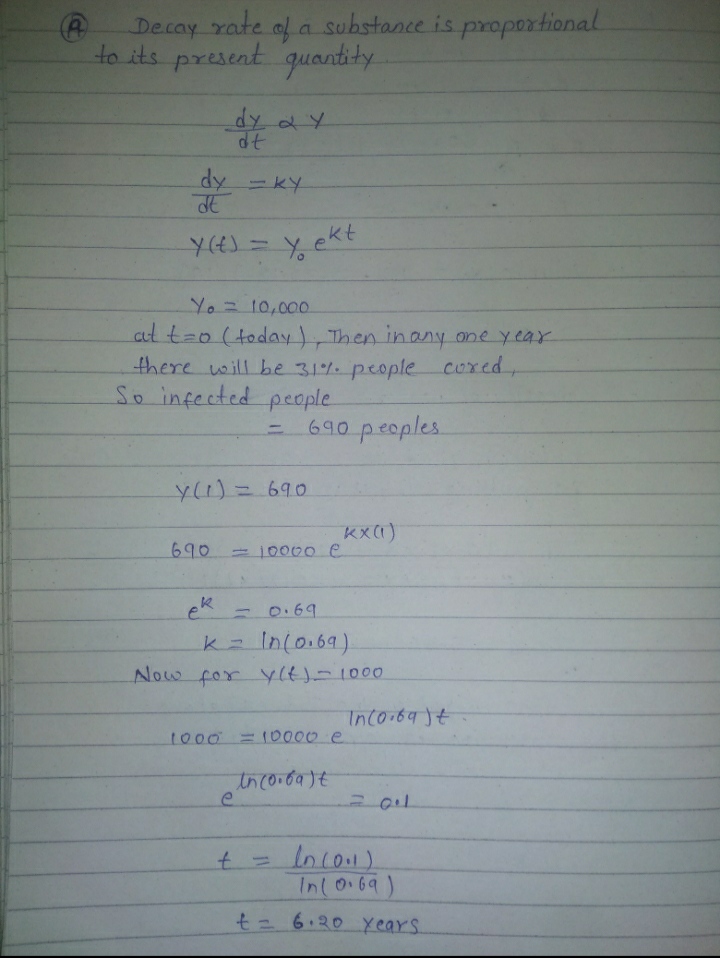 Ⓐ Decay rate of a substance is proportional
to its present quantity.
dy/dt ∝ y
dy/dt = ky
y(t) = y₀ e^kt
y₀ = 10,000
at t=0 (today), Then in any one year
there will be 31% people cured,
So infected people
= 690 peoples
y(1) = 690
690 = 10000 e^k×(1)
e^k = 0.69
k = ln(0.69)
Now for y(t) = 1000
1000 = 10000 e^ln(0.69)t.
e^ln(0.69)t = 0.1
t = ln(0.1)/ln(0.69)
t = 6.20 years